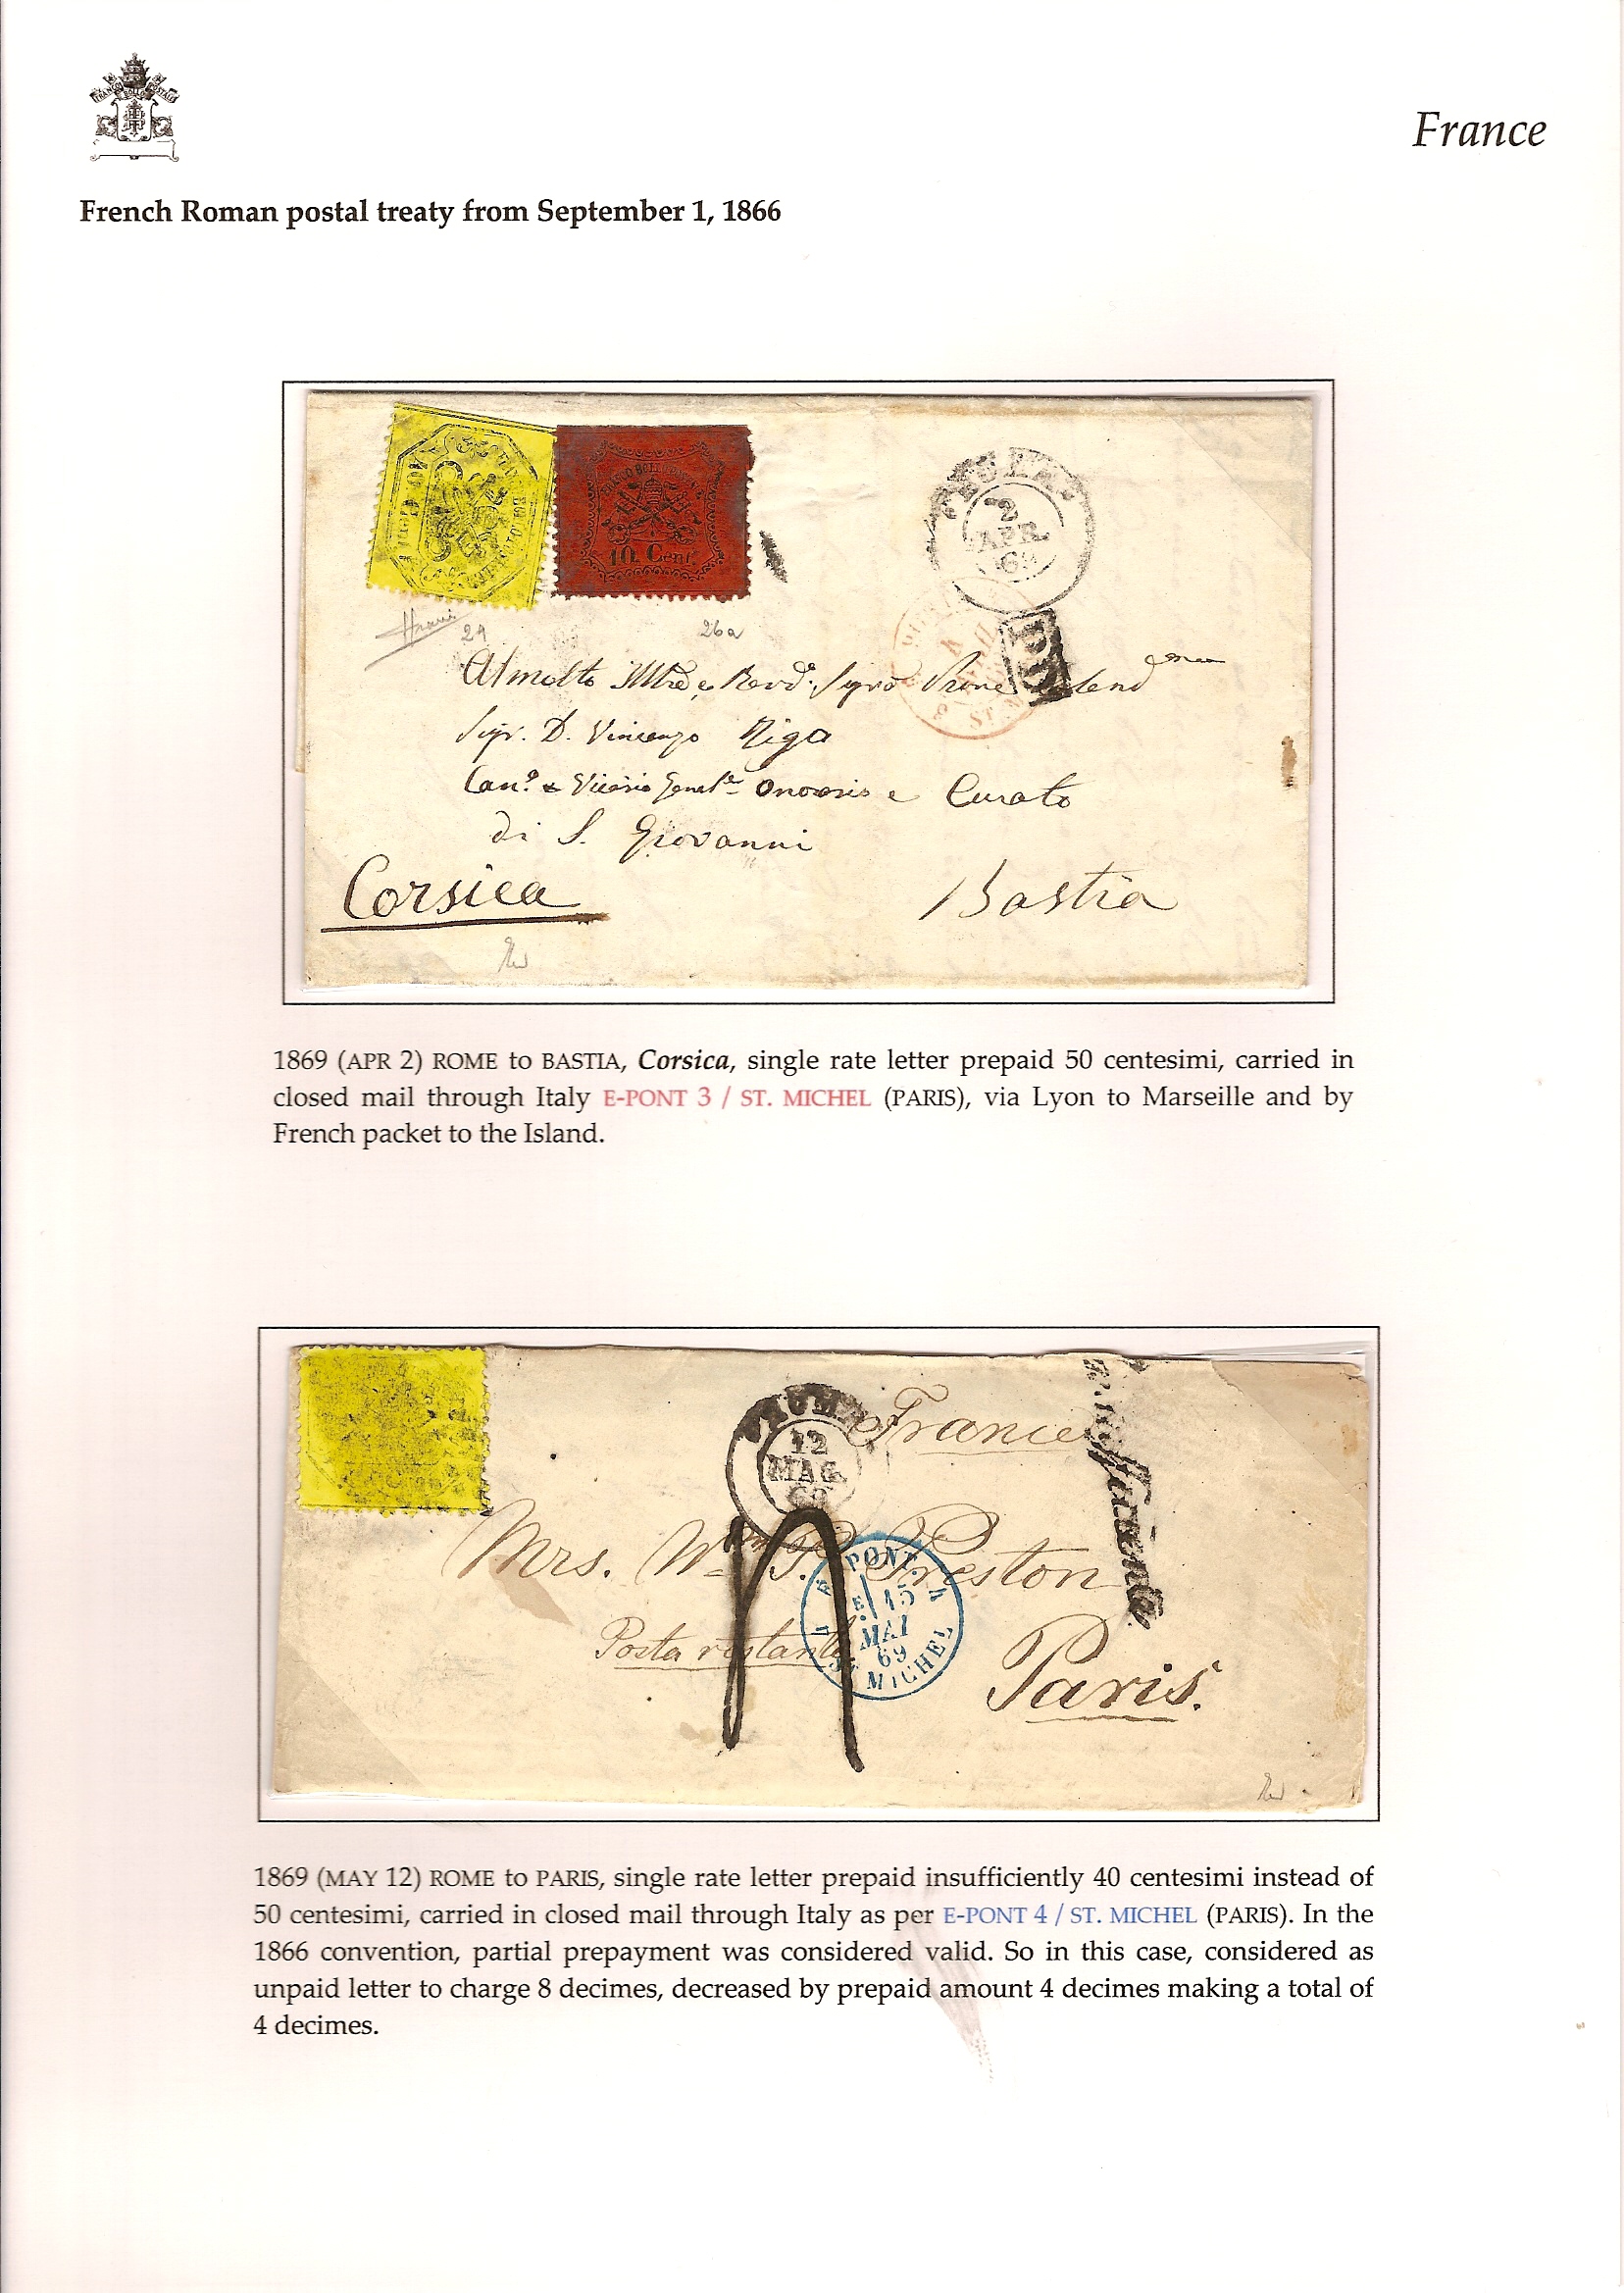 FRANCO BOLLO POSTALE
France
French Roman postal treaty from September 1, 1866
10 Cent
ROMA
2
APR.
69
PD
24
26a
Almolto
Sigr. D. Vincenzo Riga
Can.º e Vicario Genle Onorario e Curato
di S. Giovanni
Corsica
Bastia
1869 (APR 2) ROME to BASTIA, Corsica, single rate letter prepaid 50 centesimi, carried in
closed mail through Italy E-PONT 3 / ST. MICHEL (PARIS), via Lyon to Marseille and by
French packet to the Island.
ROMA
12
MAG.
69
France
Mrs. Wm P. Preston
E. PONT. 4
15
MAI
69
ST MICHEL
Posta restante
Paris.
1869 (MAY 12) ROME to PARIS, single rate letter prepaid insufficiently 40 centesimi instead of
50 centesimi, carried in closed mail through Italy as per E-PONT 4 / ST. MICHEL (PARIS). In the
1866 convention, partial prepayment was considered valid. So in this case, considered as
unpaid letter to charge 8 decimes, decreased by prepaid amount 4 decimes making a total of
4 decimes.